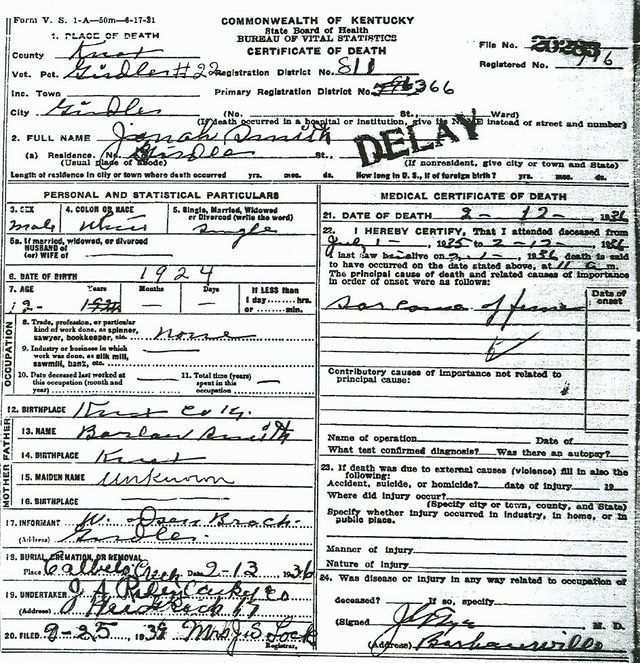 Form V. S. 1-A—50m—6-17-31
COMMONWEALTH OF KENTUCKY
State Board of Health
BUREAU OF VITAL STATISTICS
CERTIFICATE OF DEATH
1. PLACE OF DEATH
File No.
County Knox
Registered No.
Vot. Pct. Girdler #22 Registration District No. 811
Inc. Town Primary Registration District No. 366
City Girdler (No. St., Ward)
(If death occurred in a hospital or institution, give its NAME instead of street and number)
2. FULL NAME Jonah Smith
DELAY
(a) Residence. No. Girdler St.,
(Usual place of abode) (If nonresident, give city or town and State)
Length of residence in city or town where death occurred yrs. mos. ds. How long in U. S., if of foreign birth? yrs. mos. ds.
PERSONAL AND STATISTICAL PARTICULARS
3. SEX 4. COLOR OR RACE 5. Single, Married, Widowed
or Divorced (write the word)
Male White Single
5a. If married, widowed, or divorced
HUSBAND of
(or) WIFE of
6. DATE OF BIRTH 1924
7. AGE Years Months Days IF LESS than
1 day hrs.
or min.
12
OCCUPATION
8. Trade, profession, or particular
kind of work done, as spinner,
sawyer, bookkeeper, etc. none
9. Industry or business in which
work was done, as silk mill,
sawmill, bank, etc.
10. Date deceased last worked at
this occupation (month and
year)
11. Total time (years)
spent in this
occupation
12. BIRTHPLACE Knox Co Ky.
FATHER
13. NAME Smith
14. BIRTHPLACE Knox
MOTHER
15. MAIDEN NAME Unknown
16. BIRTHPLACE
17. INFORMANT
(Address) Girdler
18. BURIAL, CREMATION, OR REMOVAL
Place Creek Date 2-13 1936
19. UNDERTAKER J. A. Co
(Address)
20. FILED 2-25, 193 Mrs J. S. Lock
Registrar.
MEDICAL CERTIFICATE OF DEATH
21. DATE OF DEATH 2-12-, 1936
22. I HEREBY CERTIFY, That I attended deceased from
July 1-, 1935 to 2-12-, 1936
I last saw h alive on 2-1-, 1936 death is said
to have occurred on the date stated above, at 11 m.
The principal cause of death and related causes of importance
in order of onset were as follows:
Date of
onset
Sarcoma of femur
Contributory causes of importance not related to
principal cause:
Name of operation Date of
What test confirmed diagnosis? Was there an autopsy?
23. If death was due to external causes (violence) fill in also the
following:
Accident, suicide, or homicide? date of injury 19
Where did injury occur?
(Specify city or town, county, and State)
Specify whether injury occurred in industry, in home, or in
public place.
Manner of injury
Nature of injury
24. Was disease or injury in any way related to occupation of
deceased? If so, specify
(Signed) M. D.
(Address) Barbourville